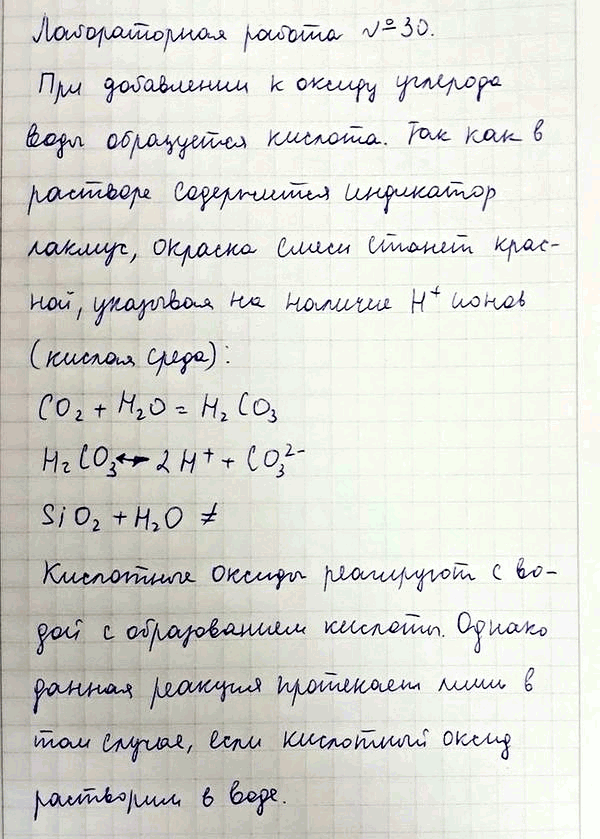 Лабораторная работа №30.
При добавлении к оксиду углерода
воды образуется кислота. Так как в
растворе содержится индикатор
лакмус, окраска смеси станет крас-
ной, указывая на наличие H⁺ ионов
(кислая среда):
CO₂ + H₂O = H₂CO₃
H₂CO₃ ↔ 2H⁺ + CO₃²⁻
SiO₂ + H₂O ≠
Кислотные оксиды реагируют с во-
дой с образованием кислоты. Однако
данная реакция протекает лиш в
том случае, если кислотный оксид
растворим в воде.